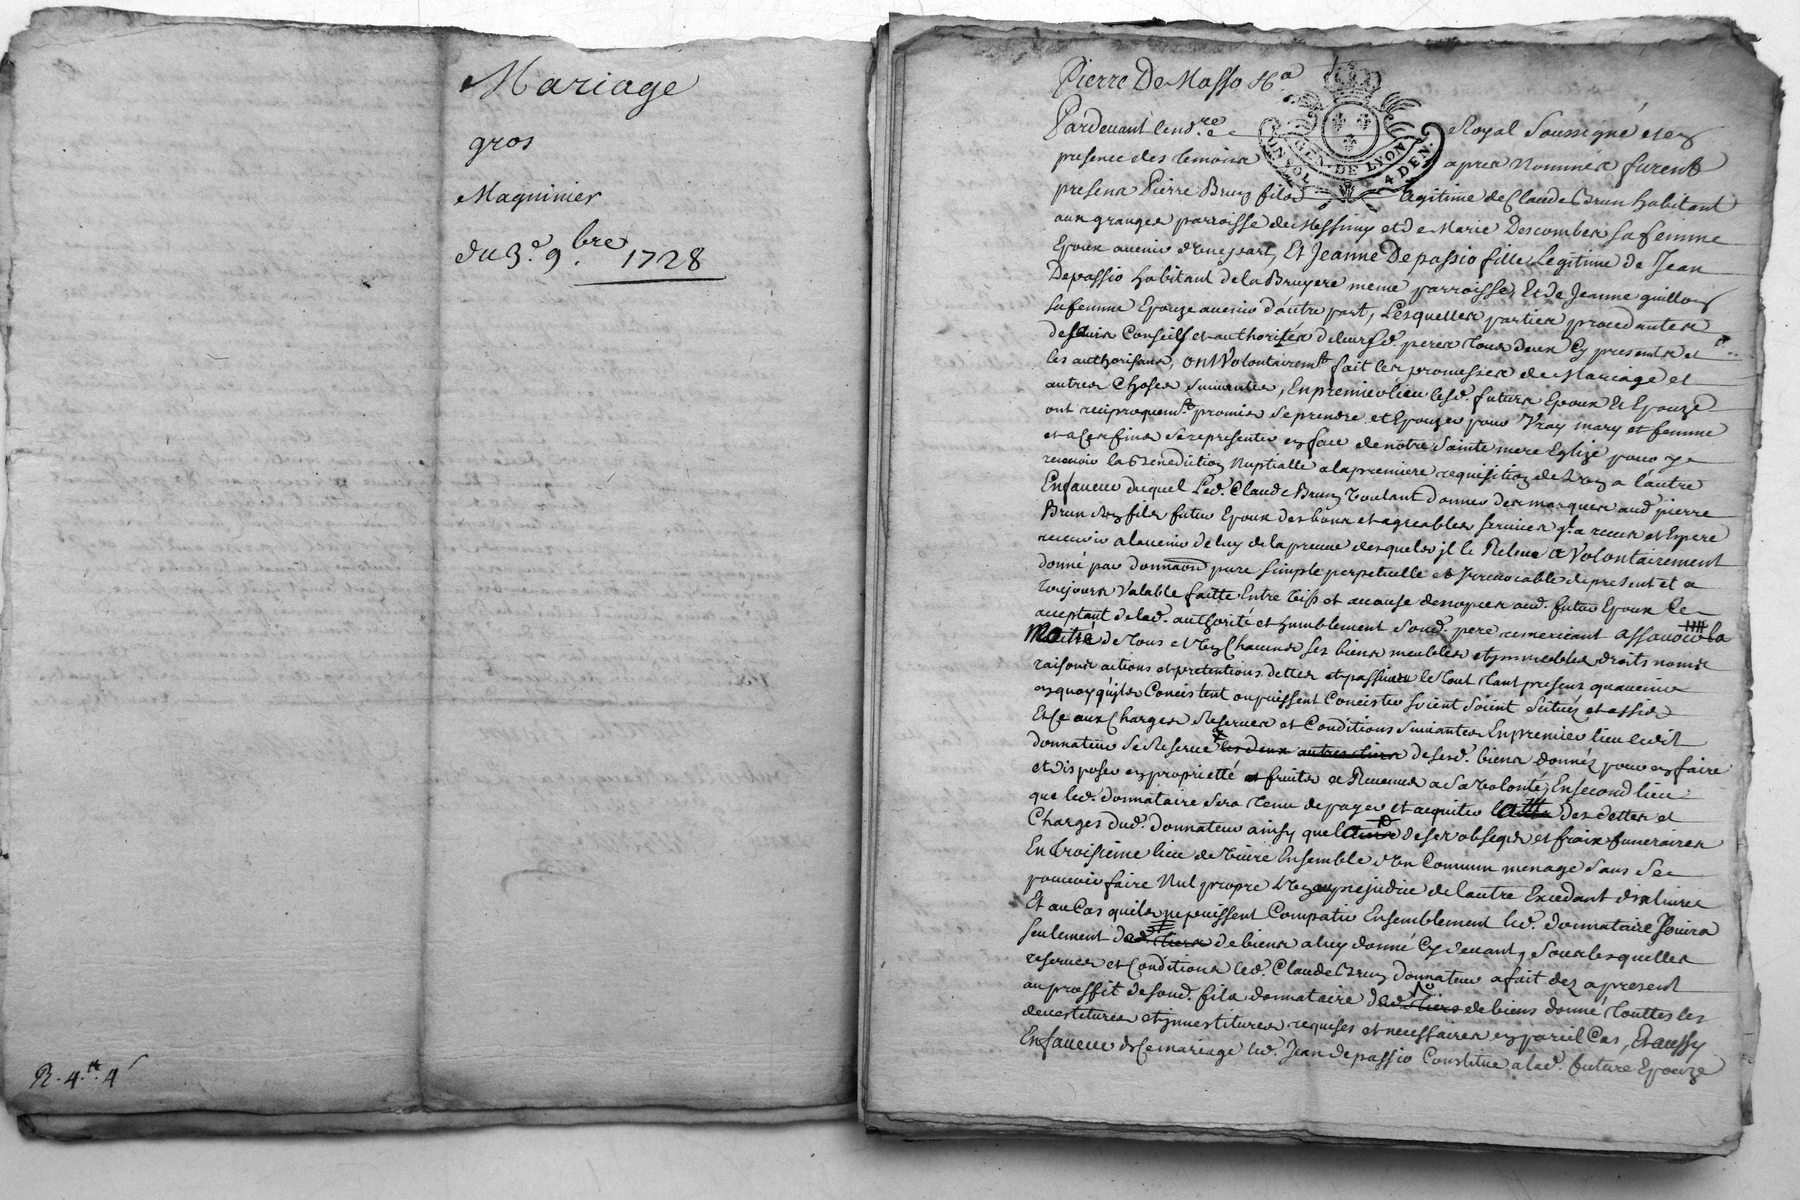 Mariage
gros
Magninier
du 3.e 9.bre 1728
R. 4.tt 4s
Pierre De Masso
GEN. DE LYON
4 DEN.
Pardevant le no.re Royal Soussigné et en
presence des temoins apres Nommés furent
presens Pierre Brun fils legitime de Claude Brun habitant
aux granges parroisse de Messimy et de Marie Descombes sa femme
Epoux avenir d'une part, Et Jeanne Depassio fille Legitime de Jean
Depassio habitant de la Bruyere meme parroisse, Et de Jeanne guillon
sa femme Epouze avenir d'autre part, Lesquelles parties procedantes
de leurs Conseils et authorités de leurs d. peres tous deux Cy presents et
les authorisans, ont Volontairemt fait les promesses de Mariage et
autres Choses Suivantes, En premier lieu lesd. futurs Epoux Et Epouze
ont reciproquemt promis Se prendre et Epouzer pour Vray mary et femme
et a Ces fins Se representer en face de notre Sainte mere Eglize pour y
recevoir la Benediction Nuptialle a la premiere requisition de L'un a l'autre
En faveur duquel Led. Claude Brun Voulant donner des marques aud. pierre
Brun son fils futur Epoux des bons et agreables services qu'il a receu et Espere
recevoir a l'avenir de luy de la preuve desquels il le Releve a Volontairement
donné par donnaon pure simple perpetuelle et Irrevocable de present et a
toujours Valable faitte Entre Vifs et a cause de nopces aud. futur Epoux
acceptant de lad. authorité et humblement Sond. pere remerciant assavoir la
Moitié de tous et Un Chacuns Ses biens meubles et immeubles droits noms
raisons actions et pretentions dettes et passives le tout tant presens qu'avenirs
en quoy qu'ils Concistent ou puissent Concister soient Soient Scitués et assis
Et Ce aux Charges Reserves et Conditions Suivantes En premier lieu led.
donnateur Se Reserve les deux autres tiers de Sesd. biens donnés pour en faire
et disposer en proprietté et fruits et Revenus a Sa Volonté, En second lieu
que led. donnataire Sera tenu de payer et acquiter des dettes et
Charges dud. donnateur ainsy que de Ses obseques et fraix funeraires
En troisieme lieu de Vivre Ensemble d'Un Commun menage Sans Se
pouvoir faire Nul propre L'Un au prejudice de l'autre Excedant dix livres
Et au Cas quils ne puissent Compatir Ensemblement led. donnataire Jouira
seulement de biens a luy donné Cy devant, Sous lesquelles
reserves et Conditions led. Claude Brun donnateur a fait dez a present
au proffit de Sond. fils donnataire de biens donné Touttes les
devestitures et investitures requises et necessaires en pareil Cas, Et aussy
En faveur de Ce mariage led. Jean depassio Constitue a lad. future Epouze